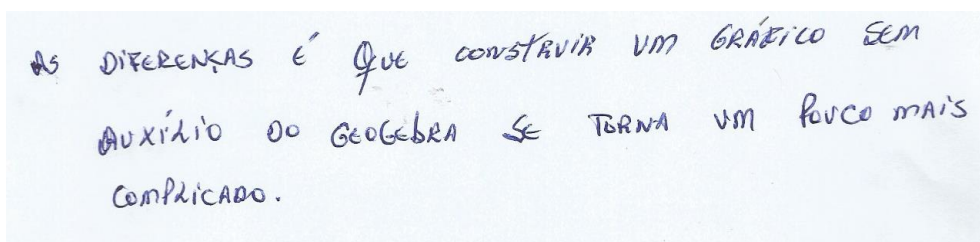 AS DIFERENÇAS É QUE CONSTRUIR UM GRÁFICO SEM
AUXÍLIO DO GEOGEBRA SE TORNA UM POUCO MAIS
COMPLICADO.